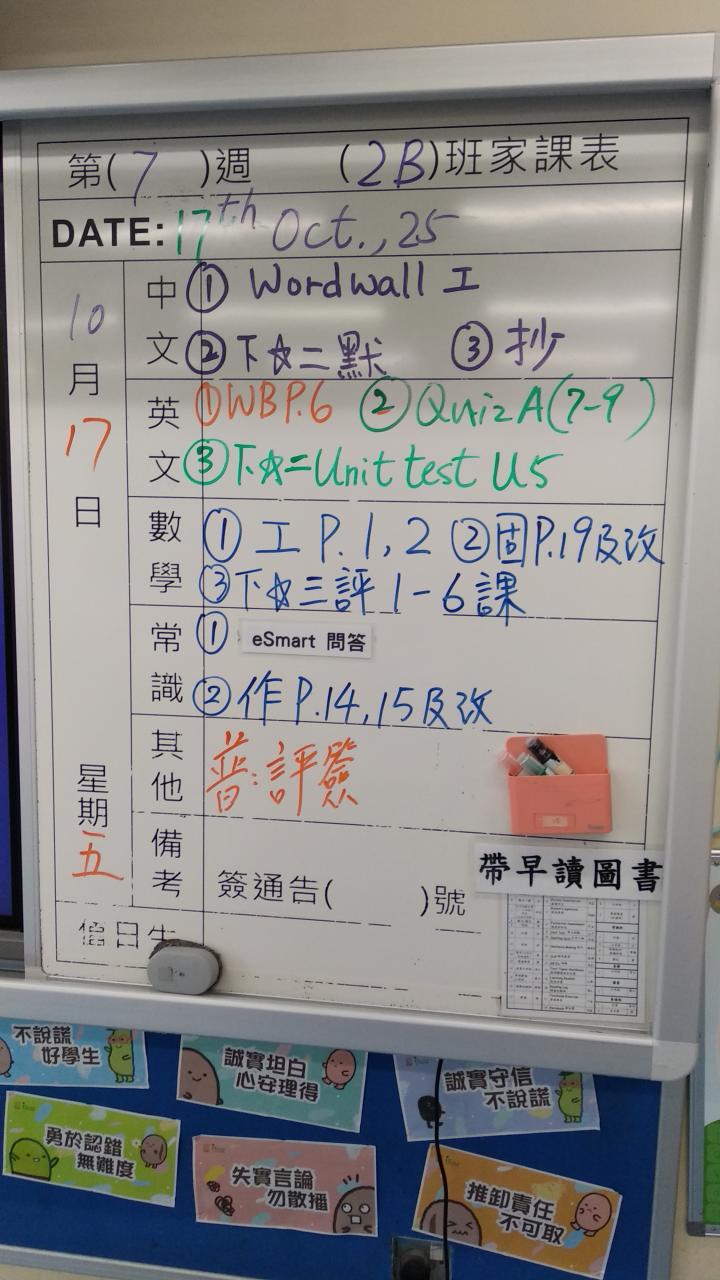 第(7)週 (2B)班家課表
DATE: 17th Oct., 25
10月17日
星期五
中文
① Wordwall 工
② 下☆二默 ③ 抄
英文
① WB P.6 ② Quiz A(7-9)
③ 下☆二 Unit test U5
數學
① 工 P.1,2 ② 固 P.19及改
③ 下☆三評 1-6課
常識
① eSmart 問答
② 作 P.14,15及改
其他
普:評簽
備考
簽通告( )號
帶早讀圖書
不說謊
好學生
誠實坦白
心安理得
誠實守信
不說謊
勇於認錯
無難度
失實言論
勿散播
推卸責任
不可取